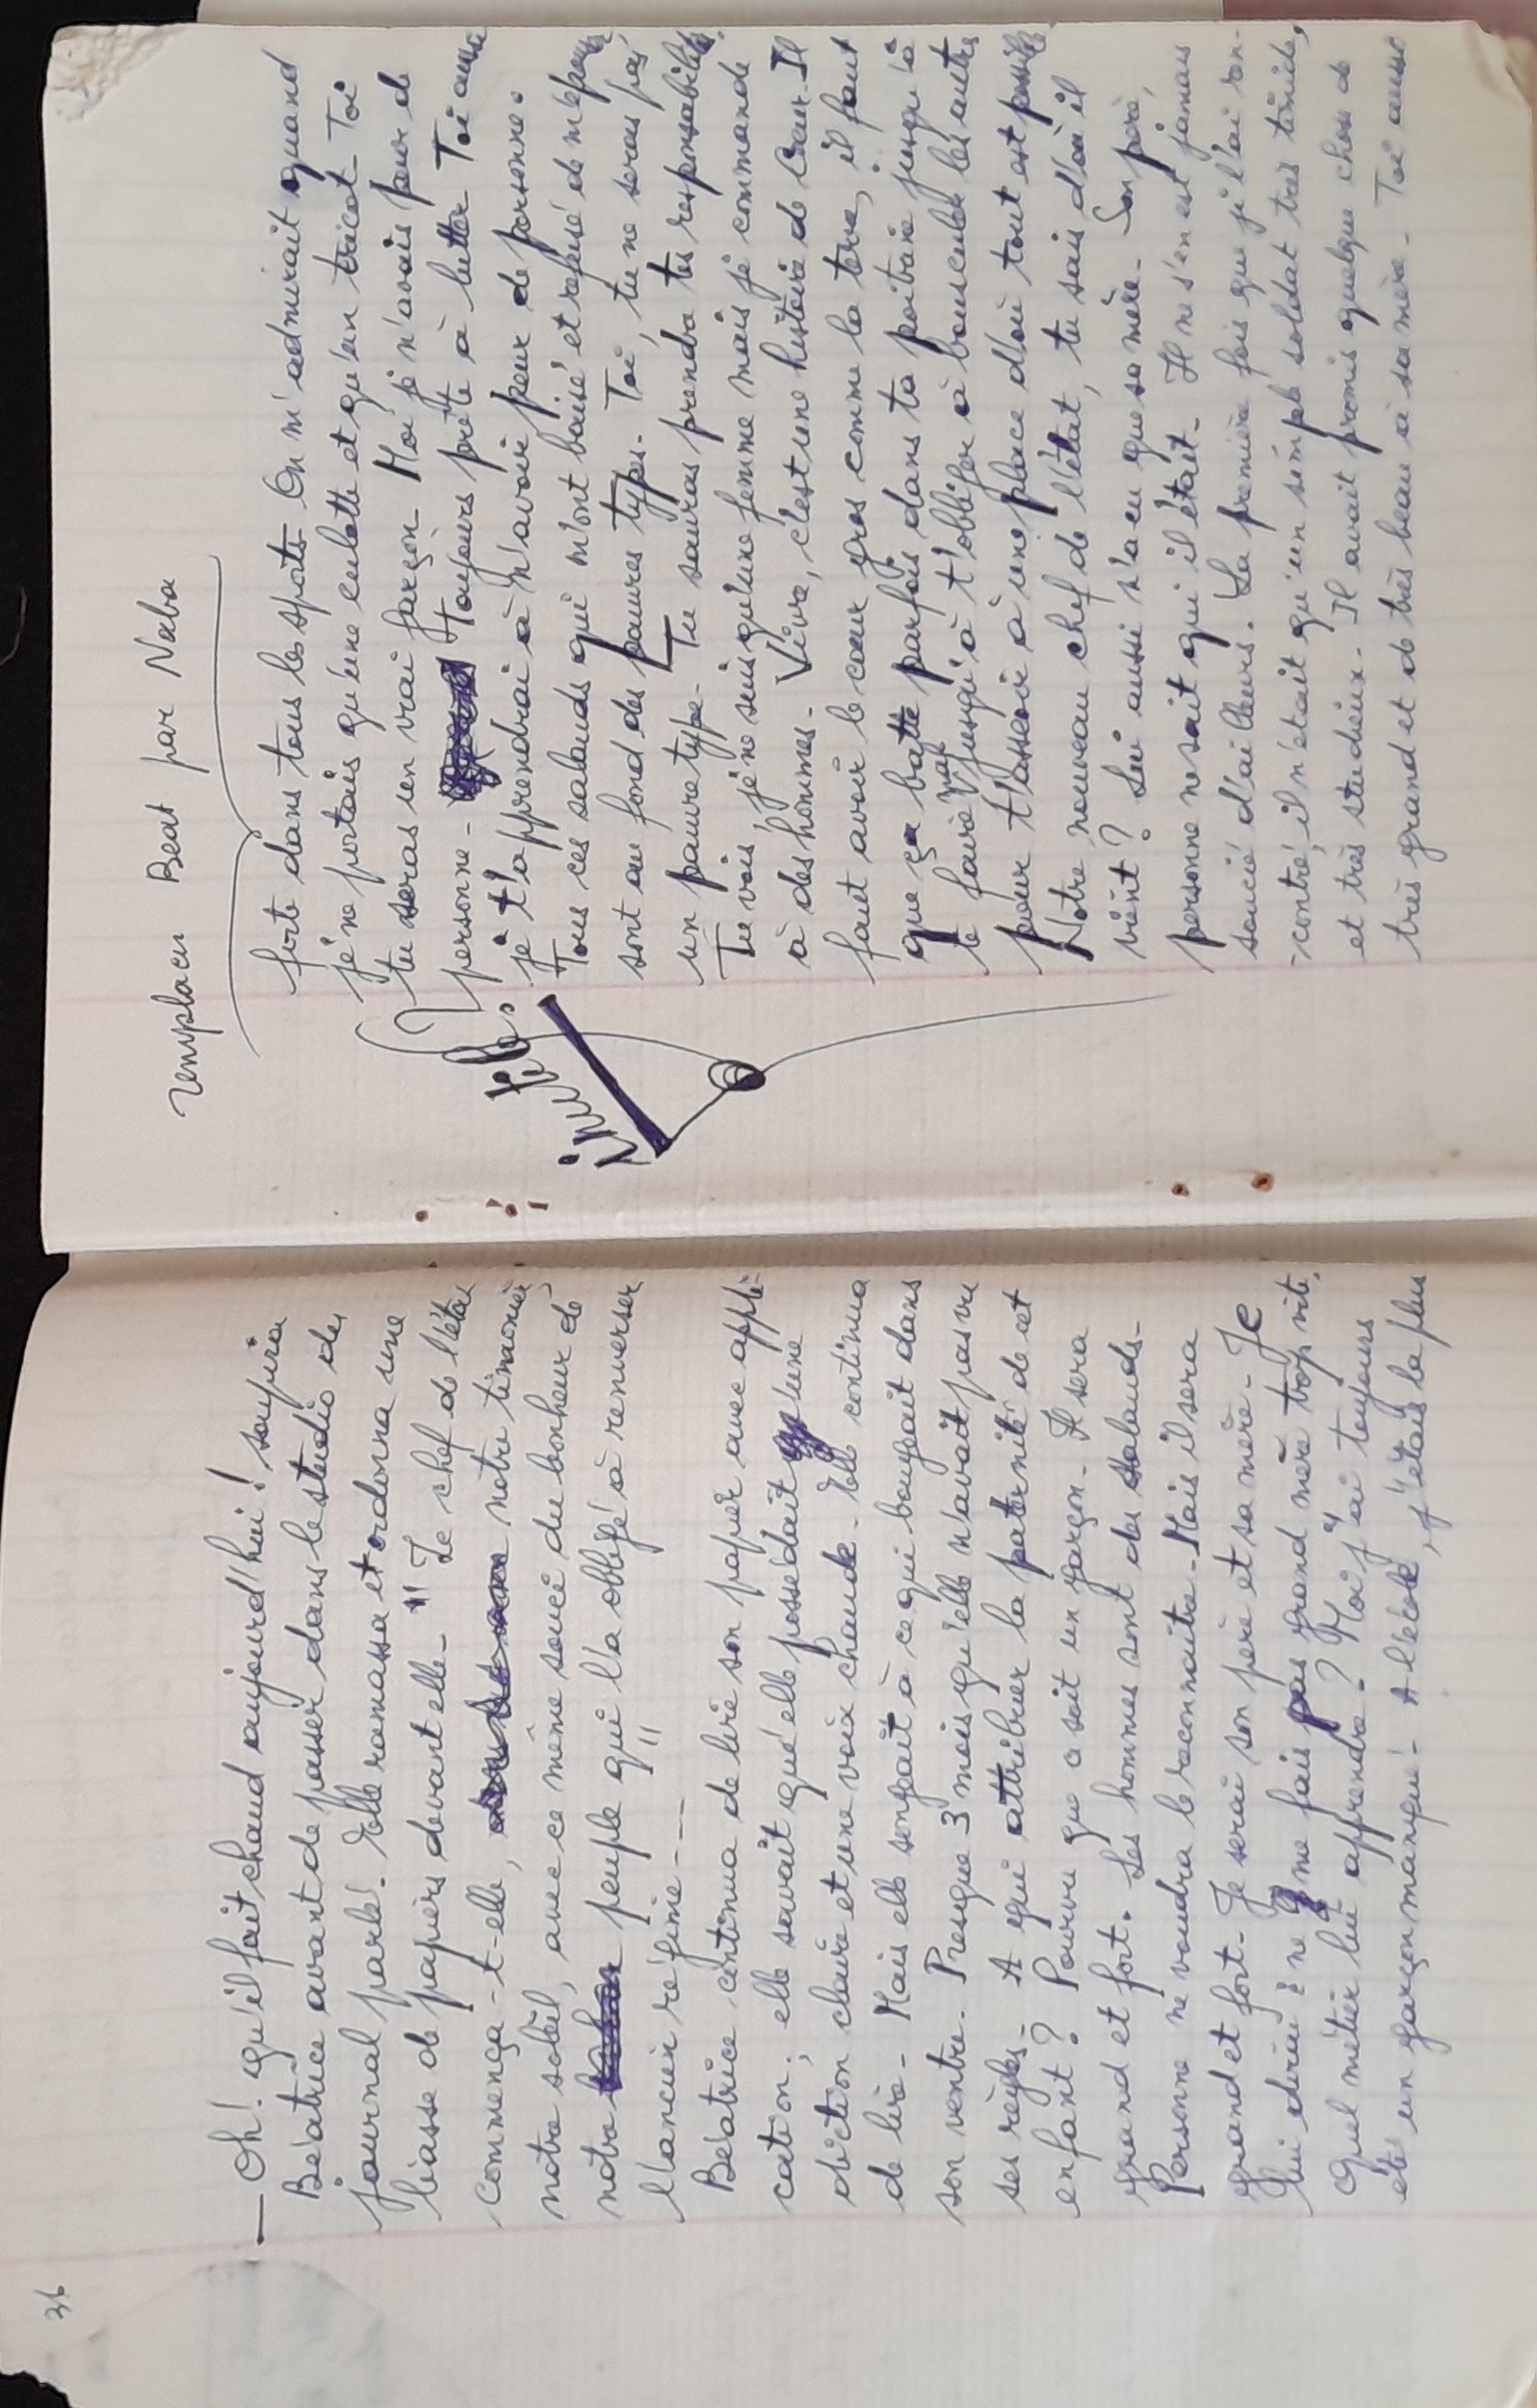 36
— Oh! qu'il fait chaud aujourd'hui! soupira
Béatrice avant de passer dans le studio du
journal parlé. Elle ramassa et ordonna une
liasse de papiers devant elle. " Le chef de l'état
commença-t-elle, notre timonier,
notre soleil, avec ce même souci du bonheur de
notre peuple qui l'a obligé à renverser
l'ancien régime --- "
Béatrice continua de lire son papier avec appli-
cation; elle savait qu'elle possédait une
diction claire et une voix chaude. Elle continua
de lire. Mais elle songeait à ce qui bougeait dans
son ventre. Presque 3 mois qu'elle n'avait pas vu
ses règles. A qui attribuer la paternité de cet
enfant? Pourvu que ce soit un garçon. Il sera
grand et fort. Les hommes sont des salauds.
Personne ne voudra le reconnaître. Mais il sera
grand et fort. Je serai son père et sa mère. Je
lui dirai: ne me fais pas grand mère trop vite.
Quel métier lui apprendre? Moi j'ai toujours
été un garçon manqué. A l'école, j'étais la plus
remplacer Beat par Naba
forte dans tous les sports. On m'admirait quand
je ne portais qu'une culotte et qu'un tricot. Toi
tu seras un vrai garçon. Moi je n'avais peur de
personne. Toujours prête à lutter. Toi aussi
je t'apprendrai à n'avoir peur de personne.
Tous ces salauds qui m'ont baisé et refusé de m'épouser,
sont au fond des pauvres types. Toi, tu ne seras pas
un pauvre type. Tu sauras prendre tes responsabilités.
Tu vois, je ne suis qu'une femme mais je commande
à des hommes. Vivre, c'est une histoire de cœur. Il
faut avoir le cœur gros comme la terre, il faut
que ça batte parfois dans ta poitrine jusqu'à
te faire mal, jusqu'à t'obliger à bousculer les autres
pour t'asseoir à une place d'où tout est possible
Notre nouveau chef de l'état, tu sais d'où il
vient? Lui aussi n'a eu que sa mère. Son père,
personne ne sait qui il était. Il ne s'en est jamais
soucié d'ailleurs. La première fois que je l'ai ren-
-contré, il n'était qu'un simple soldat très timide,
et très studieux. Il avait promis quelque chose de
très grand et de très beau à sa mère. Toi aussi
inutile